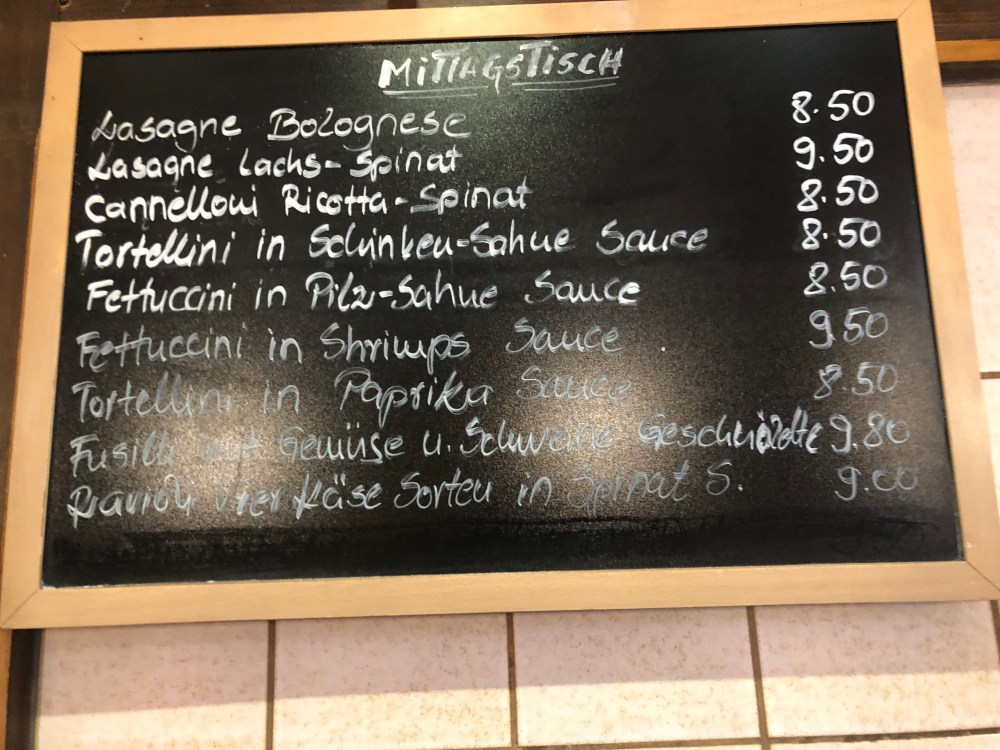 MiTTAGSTiSCH
Lasagne Bolognese 8.50
Lasagne Lachs-Spinat 9.50
Cannelloni Ricotta-Spinat 8.50
Tortellini in Schinken-Sahne Sauce 8.50
Fettuccini in Pilz-Sahne Sauce 8.50
Fettuccini in Shrimps Sauce 9.50
Tortellini in Paprika Sauce 8.50
Fusilli mit Gemüse u. Schweine 9.80
Ravioli vier Käse Sorten in Spinat S. 9.00